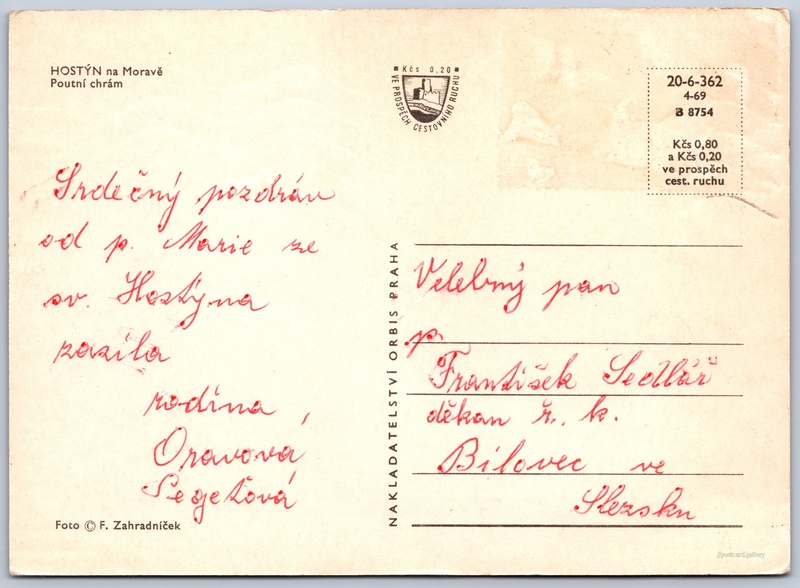 HOSTÝN na Moravě
Poutní chrám
Kčs 0,20
VE PROSPĚCH CESTOVNÍHO RUCHU
20-6-362
4-69
B 8754
Kčs 0,80
a Kčs 0,20
ve prospěch
cest. ruchu
Srdečný pozdrav
od p. Marie ze
sv. Hostýna
zasíla
rodina
Oravová
Segeťová
Foto © F. Zahradníček
NAKLADATELSTVÍ ORBIS PRAHA
Velebný pan
p.
František Sedlář
děkan ř. k.
Bílovec ve
Slezsku
postcard.gallery